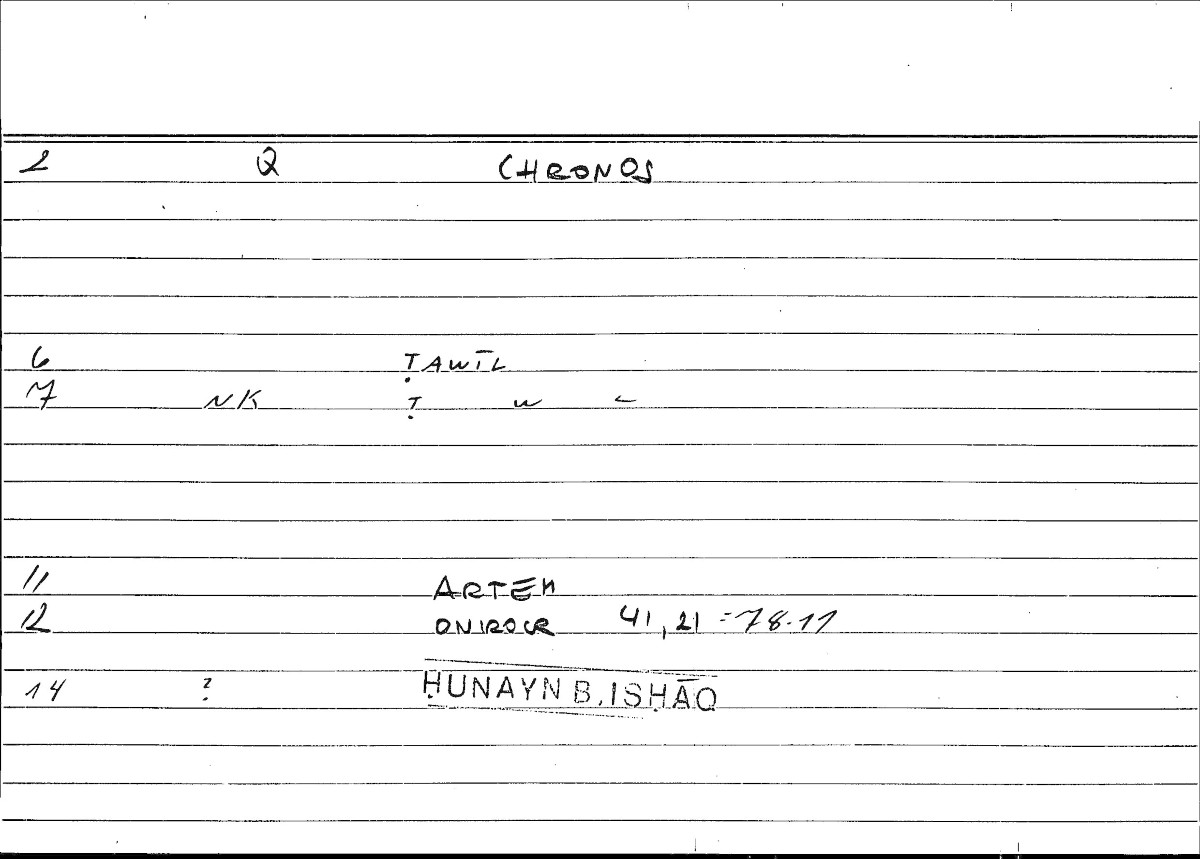 2 Q CHRONOS
6 ṬAWĪL
7 NK Ṭ W L
11 ARTEM
12 ONIROCR 41,21 = 78.11
14 ? ḤUNAYN B. ISḤĀQ